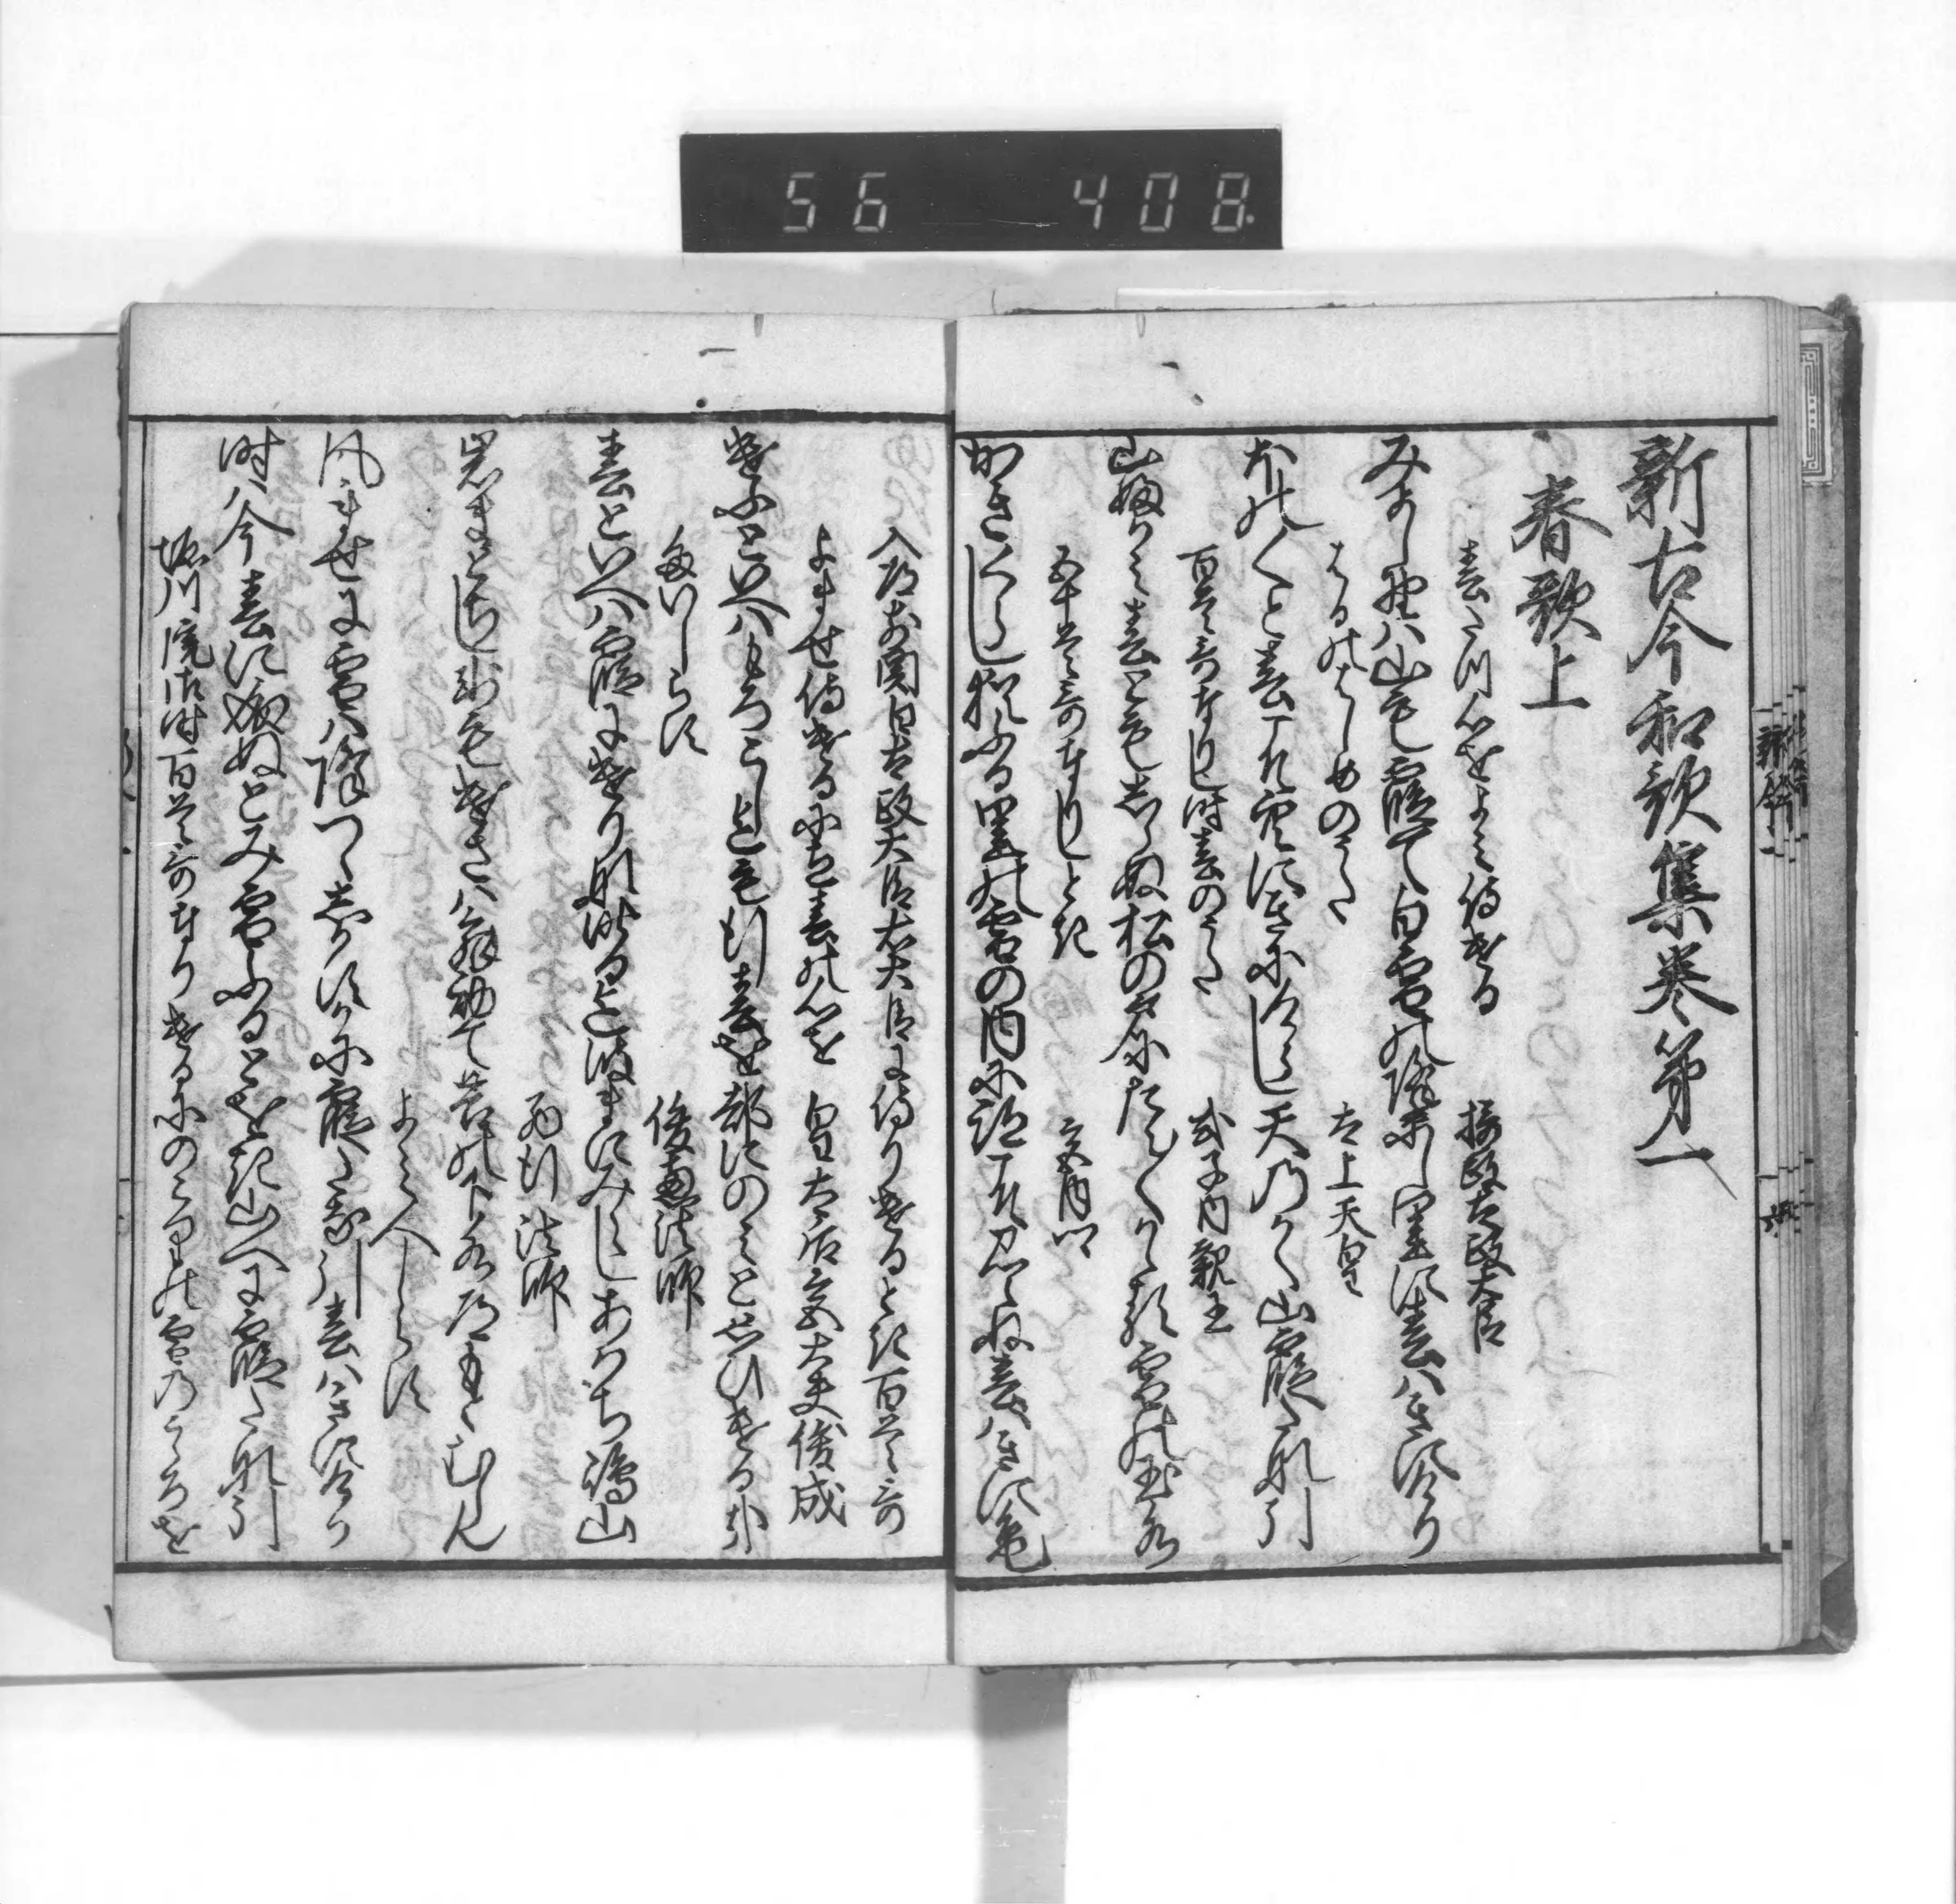 56 408
新古今和歌集巻第一
春歌上
春たつ心をよみ侍ける 摂政太政大臣
みよし野は山も霞て白雪のふりにし里に春はきにけり
はるのはしめのうた 太上天皇
ほの〱と春こそ空にきにけらし天のかく山霞たな引
百首哥奉りし時春のうた 式子内親王
山ふかみ春ともしらぬ松の戸にたえ〱かゝる雪の玉水
五十首哥奉りしとき 宮内卿
かきくらし猶ふる里の雪の内に跡こそみえね春はきにけり
入道前関白太政大臣右大臣に侍りけるとき百首哥
よませ侍けるに立春の心を 皇太后宮大夫俊成
けふといへはもろこしまても行春を都にのみと思ひけるかな
題しらす 俊恵法師
春といへは霞にけりなきのふまて波まにみえしあはち嶋山
西行法師
岩まとちし氷もけさはとけ初て苔の下水道もとむらん
よみ人しらす
風ませに雪は降つゝしかすかに霞たな引春はきにけり
時は今春に成ぬとみ雪ふるとをき山へに霞たな引
堀川院御時百首哥奉りけるにのこりの雪のこゝろを